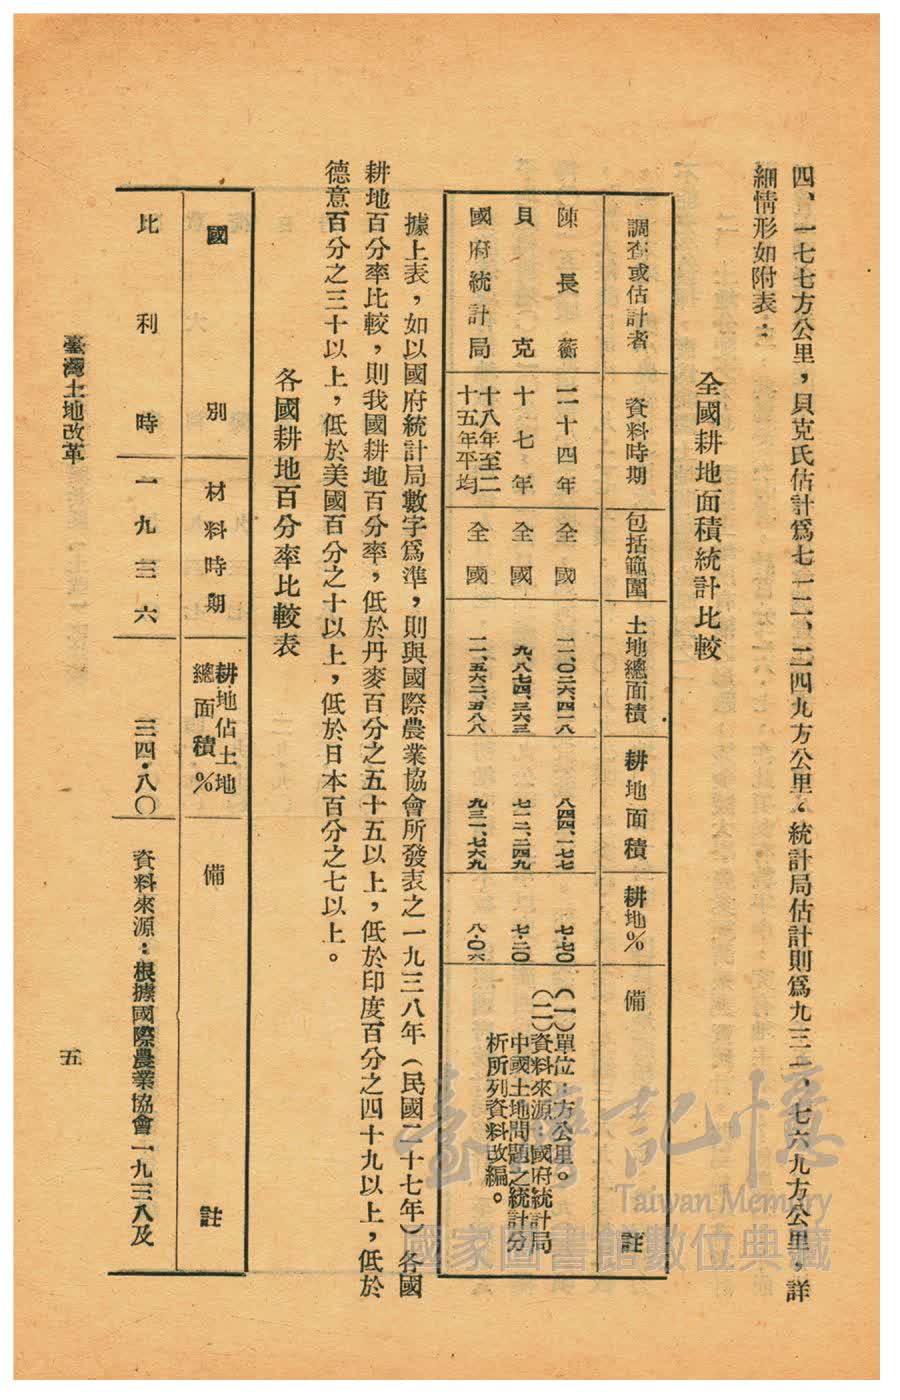 四、一七七方公里，貝克氏估計爲七一二、二四九方公里，統計局估計則爲九三一、七六九方公里，詳
細情形如附表：
全國耕地面積統計比較
調查或估計者　資料時期　包括範圍　土地總面積　耕地面積　耕地％　備註
陳長蘅　二十四年　全國　一一、〇二六、四一八　八四四、一七七　七・七〇
貝克　十七年　全國　九、八七四、三六三　七一二、二四九　七・二〇
國府統計局　十八年至二十五年平均　全國　一一、五六二、五八八　九三一、七六九　八・〇六
（一）單位：方公里。
（二）資料來源：國府統計局
中國土地問題之統計分
析所列資料改編。
據上表，如以國府統計局數字爲準，則與國際農業協會所發表之一九三八年（民國二十七年）各國
耕地百分率比較，則我國耕地百分率，低於丹麥百分之五十五以上，低於印度百分之四十九以上，低於
德意百分之三十以上，低於美國百分之十以上，低於日本百分之七以上。
各國耕地百分率比較表
國別　材料時期　耕地佔土地總面積％　備註
比利時　一九三六　三四・八〇　資料來源：根據國際農業協會一九三八及
臺灣土地改革
五
臺灣記憶
Taiwan Memory
國家圖書館數位典藏